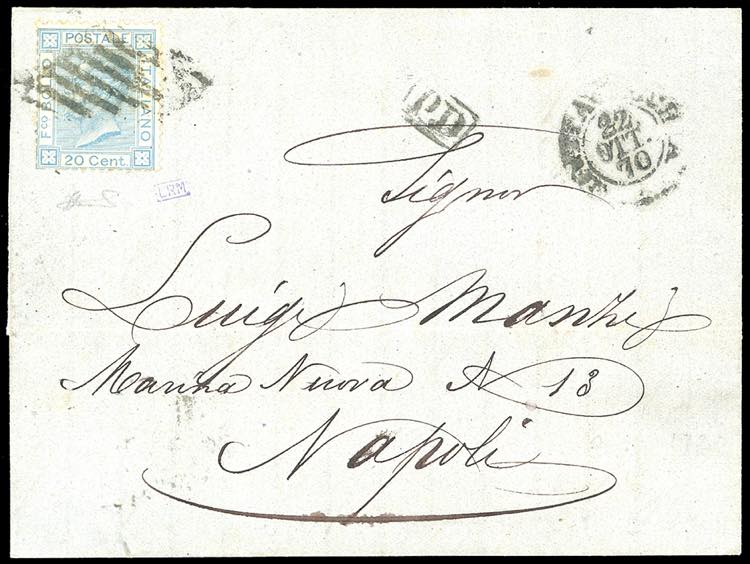 POSTALE
Fco BOLLO
ITALIANO
20 Cent.
LRM
PD
22
OTT
70
Signor
Luigi Manzi
Marina Nuova N 13
Napoli